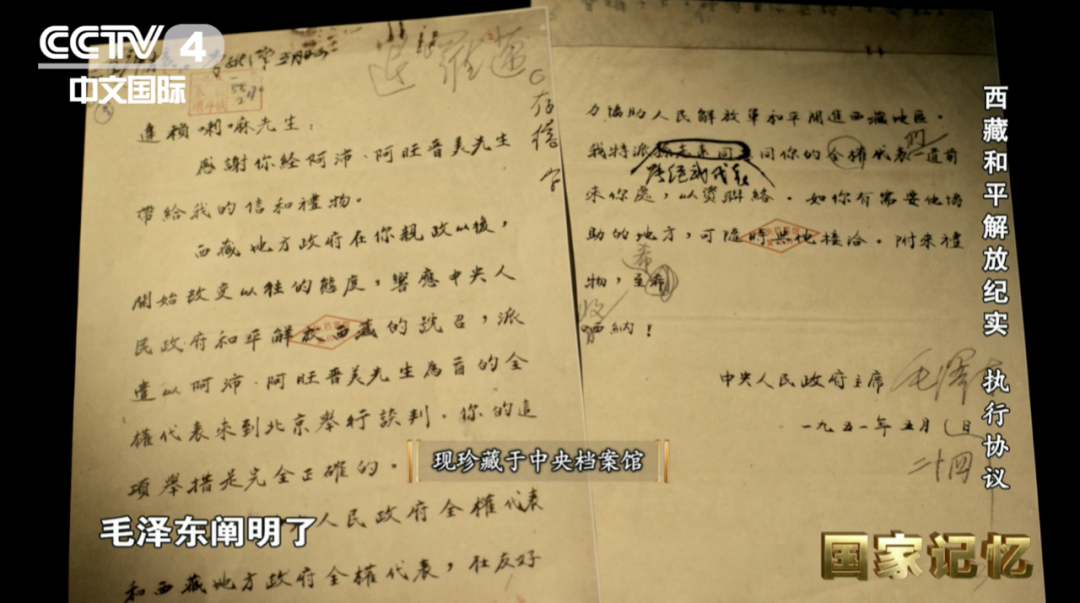 CCTV 4
中文国际
達賴喇嘛先生：
感謝你經阿沛、阿旺晋美先生
帶給我的信和禮物。
西藏地方政府在你親政以後，
開始改变以往的態度，響應中央人
民政府和平解放西藏的號召，派
遣以阿沛、阿旺晋美先生為首的全
權代表來到北京舉行談判。你的這
項舉措是完全正確的。
人民政府全權代表
和西藏地方政府全權代表，在友好
力協助人民解放軍和平開進西藏地區。
我特派
同你的全權代表一道前
張經武代表
來你處，以資聯絡。如你有需要他協
助的地方，可隨時與他接洽。附來禮
物，至希
收
哂納！
中央人民政府主席 毛澤东
一九五一年五月 日
二十四
存檔
西藏和平解放纪实 执行协议
现珍藏于中央档案馆
毛泽东阐明了
国家记忆